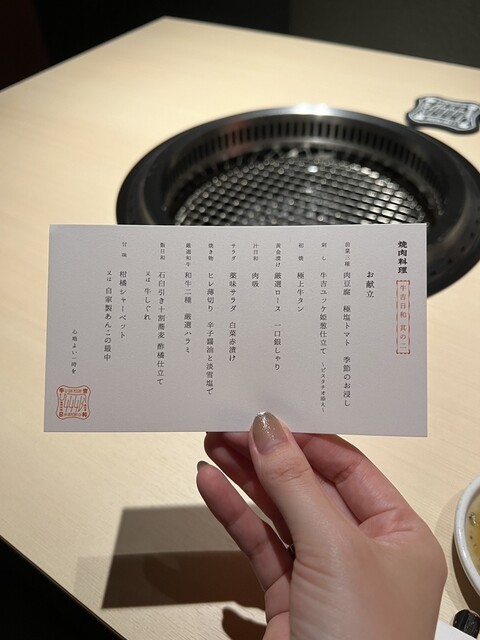 焼肉料理
牛吉日和 其の二
お献立
前菜三種 肉豆腐 極塩トマト 季節のお浸し
刺し 牛吉ユッケ姫葱仕立て ～ピスタチオ添え～
極上牛タン
黄金漬け 厳選ロース 一口銀しゃり
汁日和 肉吸
サラダ 薬味サラダ 白菜赤漬け
焼き物 ヒレ薄切り 辛子醤油と淡雪塩で
厳選和牛 和牛二種 厳選ハラミ
飯日和 石臼引き十割蕎麦 酢橘仕立て
又は 牛しぐれ
甘味 柑橘シャーベット
又は 自家製あんこの最中
心地よい一時を